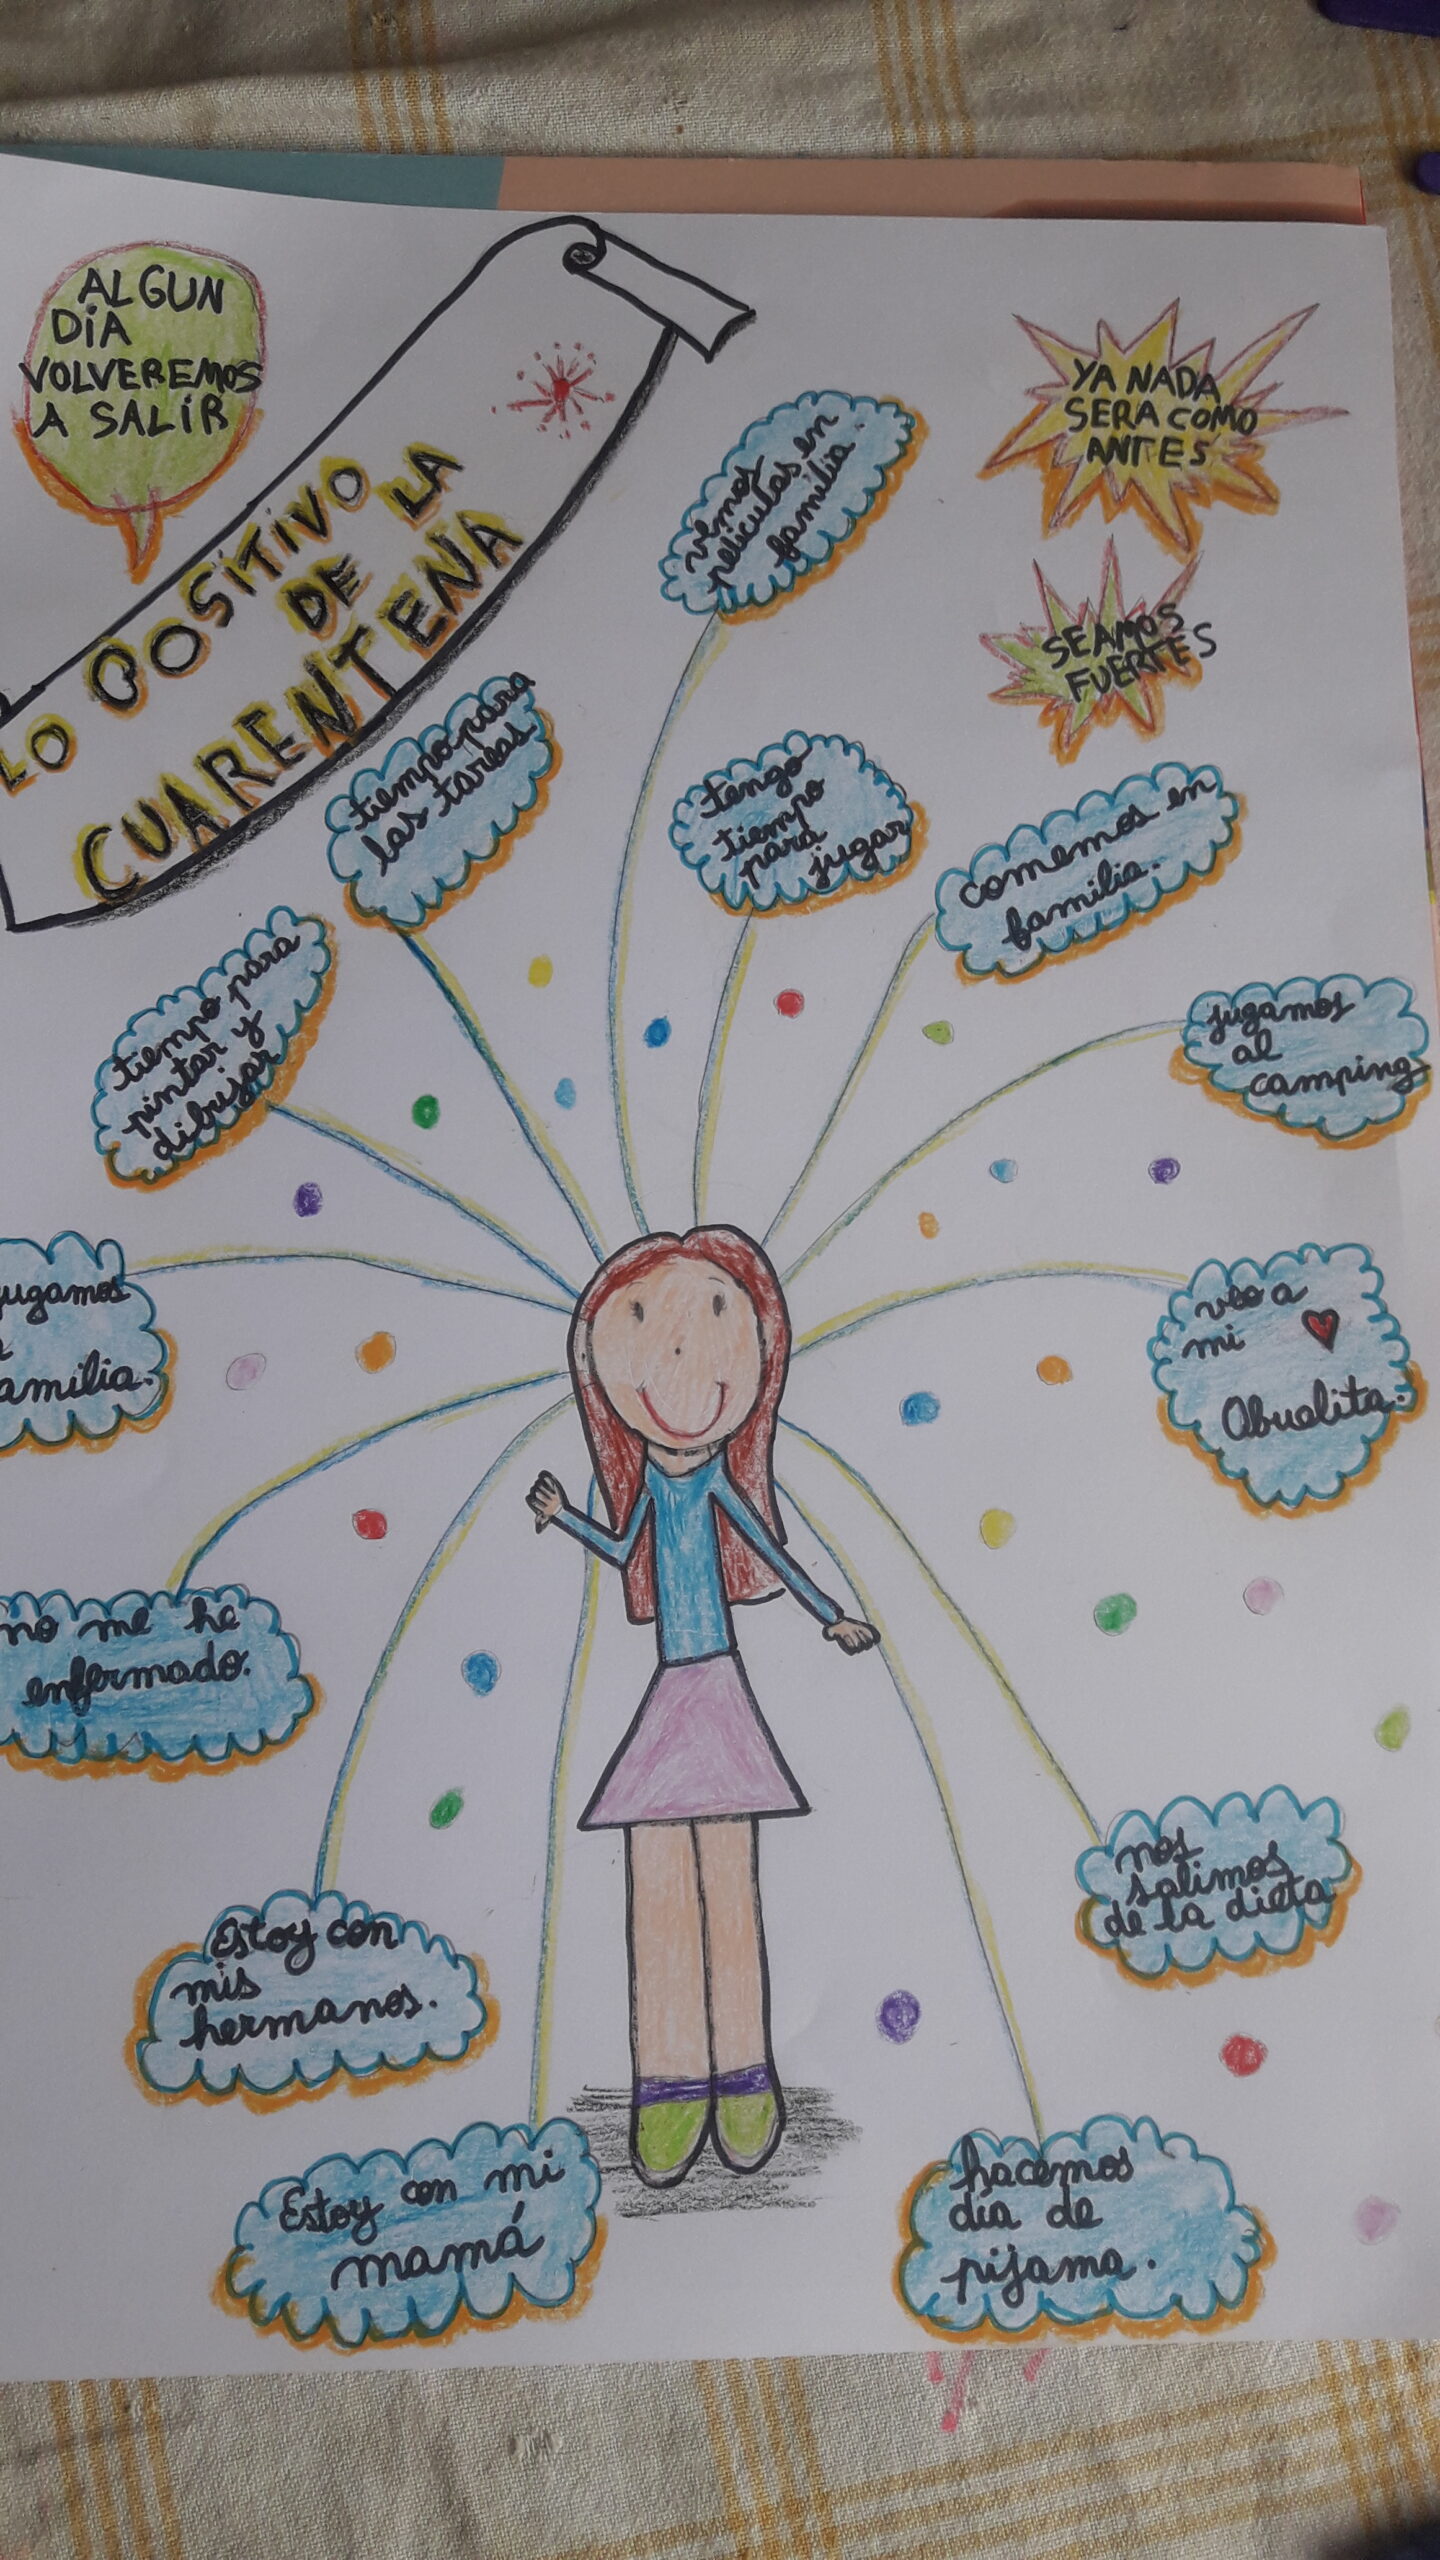 ALGUN
DÍA
VOLVEREMOS
A SALIR
LO POSITIVO
DE LA
CUARENTENA
YA NADA
SERA COMO
ANTES
SEAMOS
FUERTES
vemos
peliculas en
familia.
tiempo para
las tareas
tengo
tiempo
para
jugar
comemos en
familia.
tiempo para
pintar y
dibujar
jugamos
al
camping
jugamos
familia.
veo a
mi
Abuelita.
no me he
enfermado.
nos
salimos
de la dieta
Estoy con
mis
hermanos.
Estoy con mi
mamá
hacemos
dia de
pijama.